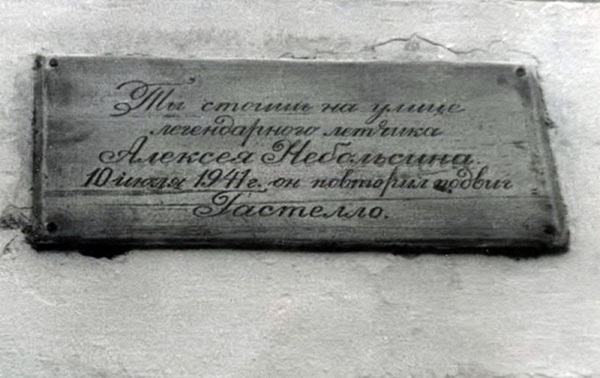 Ты стоишь на улице
легендарного летчика
Алексея Небольсина.
10 июля 1941 г. он повторил подвиг
Гастелло.